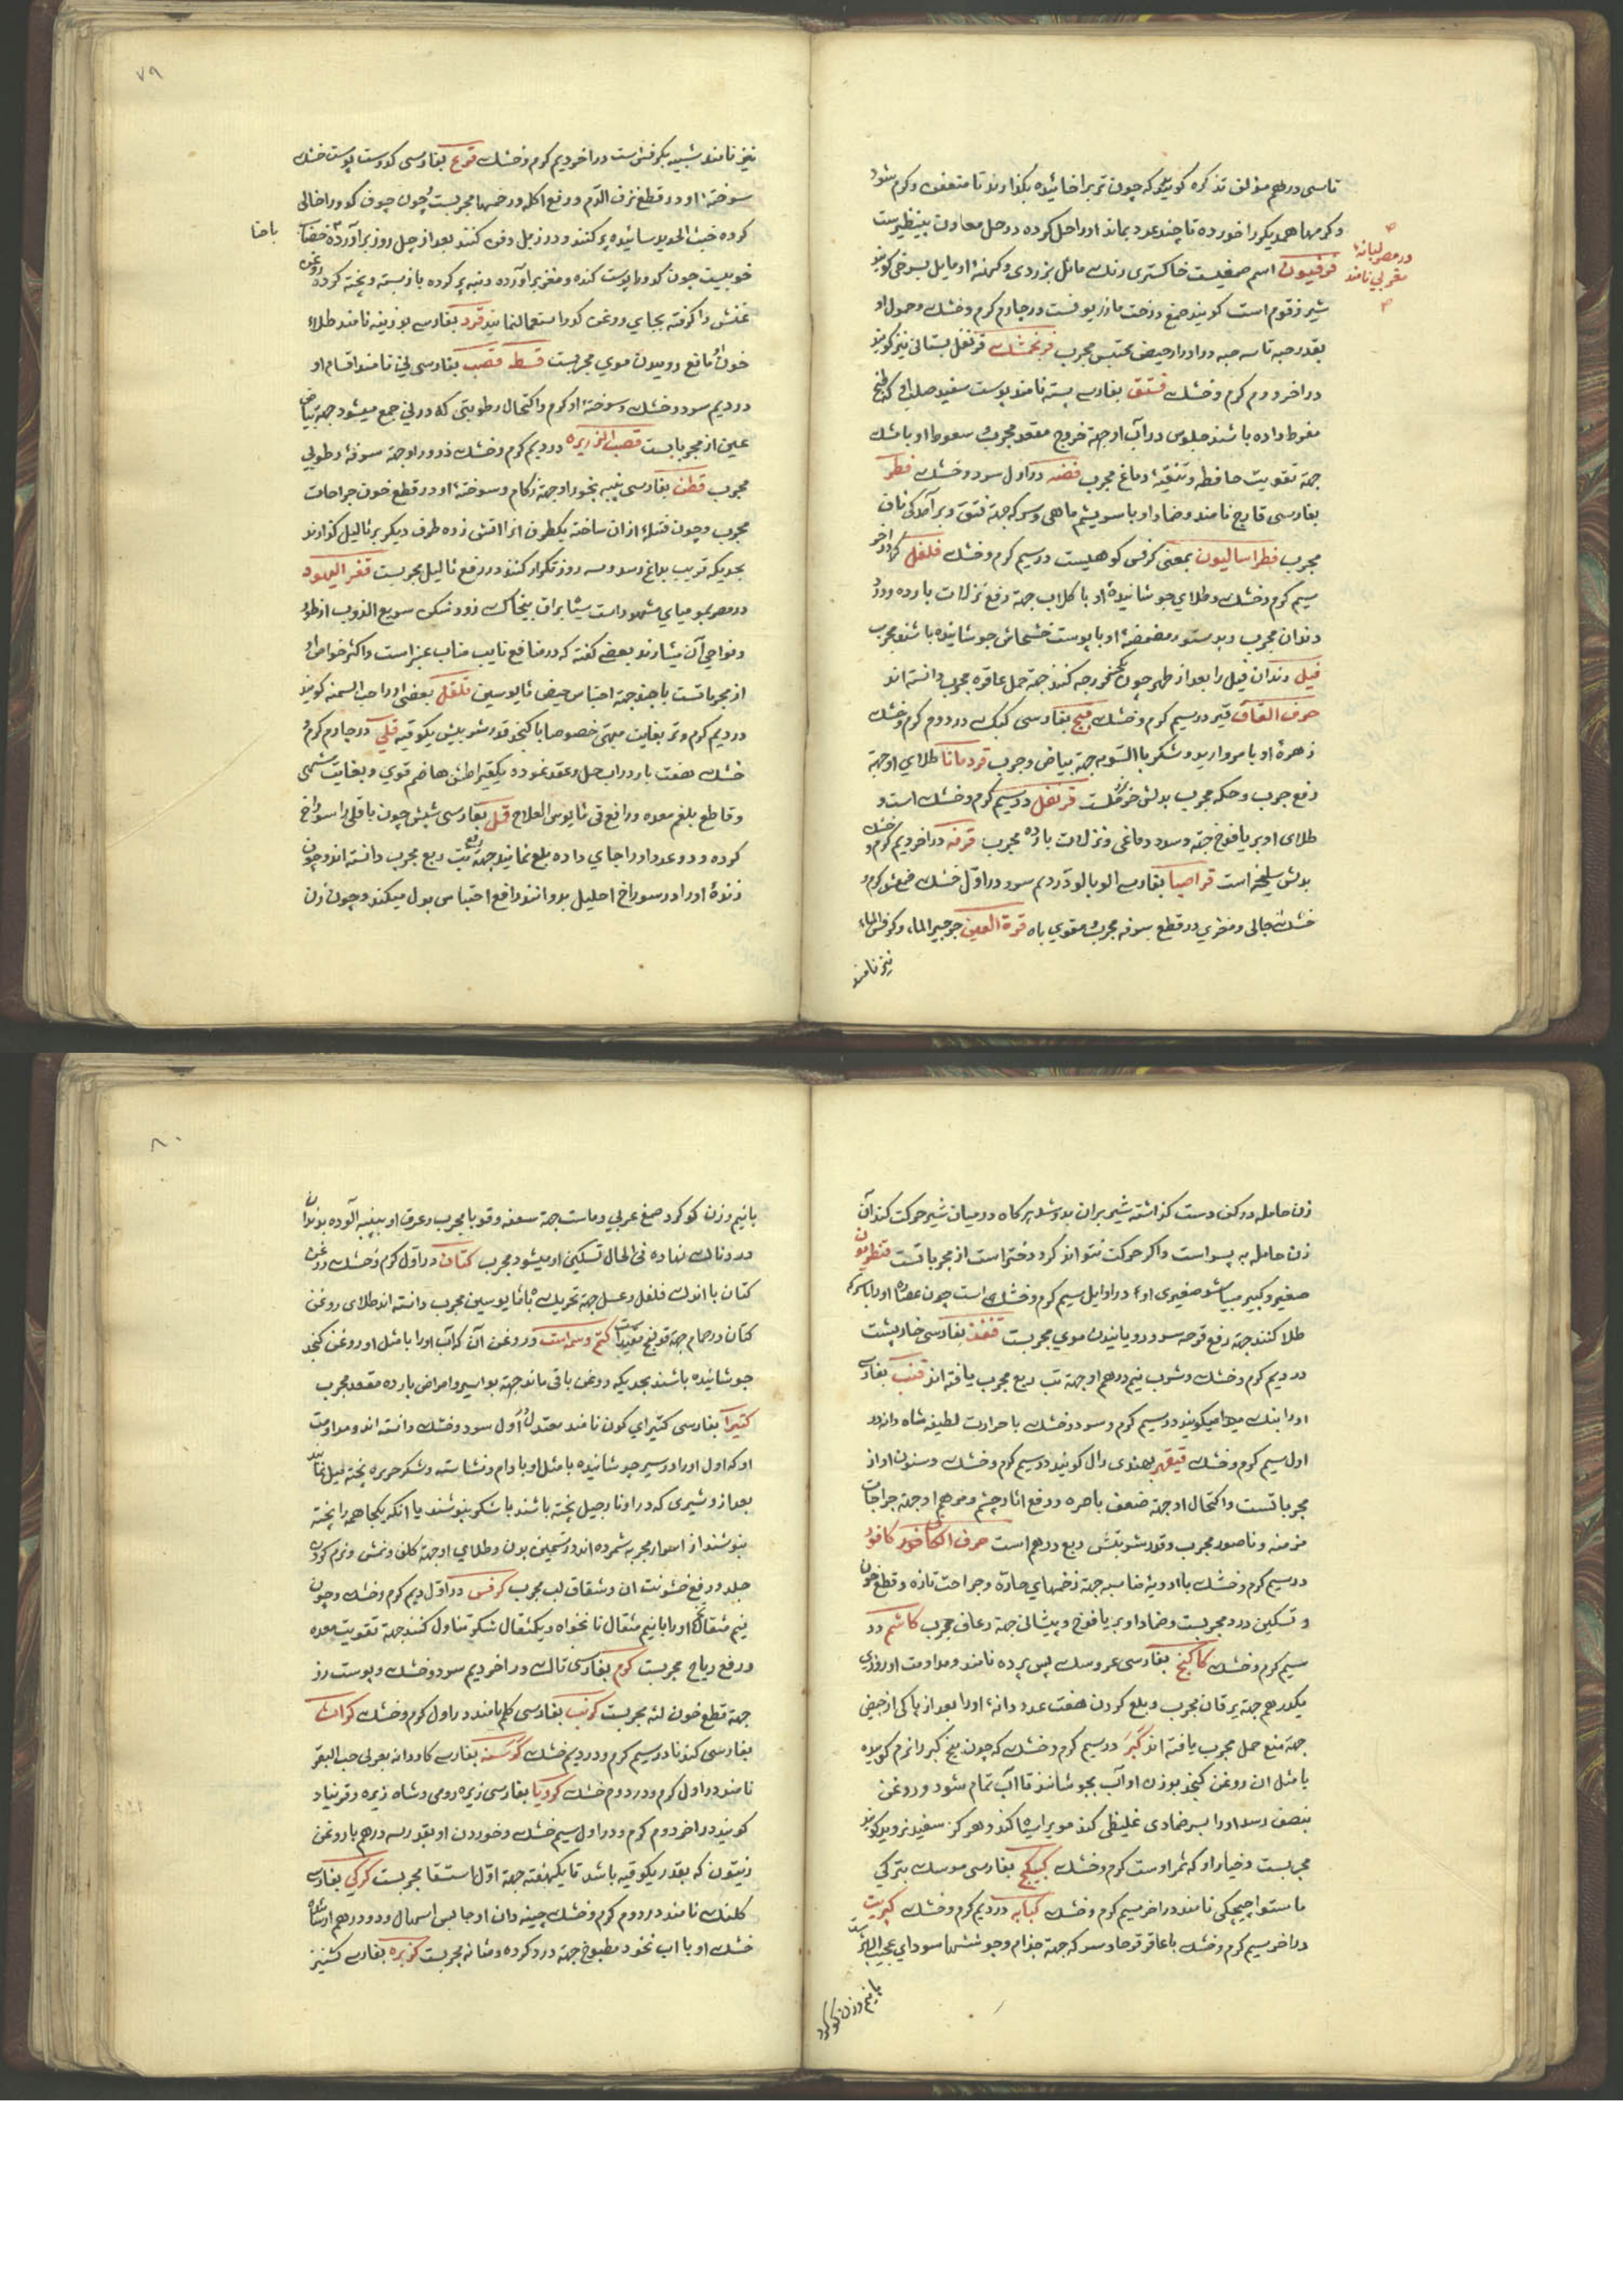 تا سی درهم مؤلف تذکره کوید که چون تربرا خائیده بکذارند تا متعفن و کرم شود
و کرمها همدیکر را خورده تا چند عدد بماند اورا حل کرده در حل معادن بینظیرست
در مصر لبانهٔ مغربی نامند
فرفیون اسم صمغیست خاکستری رنك مائل بزردی و کهنهٔ او مایل بسرخی کویند
شیر زقوم است کویند صمغ درخت مازریونست در چهارم کرم و خشك و حمول او
بقدر حبه تا سه حبه در ادرار حیض محتبس مجرب فرنجمشك قرنفل بستانی نیز کویند
در اخر دوم کرم و خشك فستق بفارسی پسته نامند پوست سفید صلب او که طبخ
مفرط داده باشند جلوس در آب او جهة خروج مقعد مجرب و سعوط او با مشك
جهة تقویت حافظه و تنقیهٔ دماغ مجرب فضه در اول سرد و خشك فطر
بفارسی قارچ نامند و ضماد او با سریشم ماهی و سرکه جهة فتق و برآمدکی ناف
مجرب فطراسالیون بمعنی کرفس کوهیست در سیم کرم و خشك فلفل در اخر
سیم کرم و خشك و طلای جوشانیدهٔ او با کلاب جهة رفع نزلات بارده و درد
دندان مجرب و بدستور مضمضهٔ او با پوست خشخاش جوشانیده باشند مجرب
فیل دندان فیل را بعد از طهر چون فرزجه کنند جهة حمل عاقره مجرب دانسته اند
حرف القاف قیر در سیم کرم و خشك قبج بفارسی کبك در دوم کرم و خشك
زهرهٔ او با مروارید و شکر بالسویه جهة بیاض و جرب قردمانا طلای او جهة
رفع جرب و حکه مجرب بدلش خرفلست قرنفل در سیم کرم و خشك است و
طلای او بر یافوخ جهة سدد دماغی و نزلات بارده مجرب قرفه در اخر دیم کرم و خشك
بدلش سلیخه است قراصیا بفارسی الوبالو در دیم سرد در اول خشك صمغش کرم و
خشك جالی و مغری در قطع سرفه مجرب و مقوی باه قرة العین جرجیر الماء و کرفس الماء
نیز نامند
۷۹
نیز نامند شبیه بکرفس است در اخر دیم کرم و خشك قرع بفارسی کدوست پوست خشك
سوختهٔ او در قطع نزف الدم و رفع اکله و زخمها مجربست و چون جوف کدو را خالی
کرده خبث الحدید سائیده پر کنند و در زبل دفن کنند بعد از چهل روز برآورده خضاب
با حنا
خوبیست چون کدو را پوست کنده و مغز برآورده و پنبه پر کرده باز بسته و پخته کرد روغن
عنش را کرفته بجای روغن کدو استعمال نمایند قرد بفارسی بوزینه نامند طلاء
خون او مانع روییدن موی مجربست قسط قصب بفارسی نی نامند اقسام او
در دیم سرد و خشك و سوختهٔ او کرم و اکتحال رطوبتی که در نی جمع میشود جهة بیاض
عین از مجرباتست قصب الذریره در دیم کرم و خشك ذرور او جهة سرفهٔ رطوبی
مجرب قطن بفارسی پنبه بخور او جهة زکام و سوختهٔ او در قطع خون جراحات
مجرب و چون فتیله از آن ساخته یکطرف انرا اتش زده طرف دیکر بر ثالیل کذارند
بحدیکه قریب بداغ رسد و سه روز تکرار کنند در رفع ثالیل مجربست قفر الیهود
در مصر بمومیای مشهور است سیاه براق بیخاك زود شکن سریع الذوب از طور
و نواحی آن میارند بعضی کفته که در منافع نایب مناب عنبر است و اکثر خواص او
از مجرباتست با جند جهة احتباس حیض ثالیوسین قلقل بعضی او را حب السمنه کویند
در دیم کرم و تر بغایت مبهی خصوصا با کنجد قدر شربتش یکوقیه قلی در چهارم کرم و
خشك هفت بار در اب حل و عقد نمود دیکقیراطش هاضم قوی و بغایت مشهی
و قاطع بلغم معده و رافع قی ثابوس العلاج قمل بفارسی شپش چون باقلی را سوراخ
کرده و دو عدد اورا جای داده بلع نمایند جهة تب ربع مجرب دانسته اند و چون
زندهٔ اورا در سوراخ احلیل بدوانند رافع احتباس بول میکند و چون زن
زن حامله در کف دست کذاشته شیر بران بدوشد هر کاه در میان شیر حرکت کند آن
زن حامله به پسر است و اکر حرکت نتواند کرد دختر است از مجرباتست قنطریون
صغیر و کبیر میباشد صغیری او در اوایل سیم کرم و خشك است چون عصاره اورا با سرکه
طلا کنند جهة رفع قرحه سر و رویانیدن موی مجربست قنفذ بفارسی خارپشت
در دیم کرم و خشك و شرب نیم درهم او جهة تب ربع مجرب یافته اند قنب بفارسی
اورا بنك میدا میکویند در سیم کرم و سرد و خشك با حرارت لطیفه شاه دانه در
اول سیم کرم و خشك قیقهر بهندی رال کویند در سیم کرم و خشك و سنون او از
مجرباتست و اکتحال او جهة ضعف باصره و رفع اثار چشم و مرهم او جهة جراحات
مزمنه و ناصور مجرب و قدر شربتش ربع درهم است حرف الکاف کافور
در سیم کرم و خشك با ادویهٔ مناسبه جهة زخمهای حاره و جراحت تازه و قطع خون
و تسکین درد مجربست و ضماد او بر یافوخ و پیشانی جهة رعاف مجرب کاشم در
سیم کرم و خشك کاکنج بفارسی عروسك پس پرده نامند و مداومت او روزی
یکدرهم جهة یرقان مجرب و بلع کردن هفت عدد دانهٔ اورا بعد از پاکی از حیض
جهة منع حمل مجرب یافته اند کبر در سیم کرم و خشك که چون بیخ کبر را نرم کوبیده
با مثل ان روغن کنجد بوزن او آب بجوشانند تا آب تمام شود و روغن
بنصف رسد اورا بسر ضمادی غلیظی کند مو را سیاه کند و هرکز سفید نروید کویند
مجربست و خیار او که ثمر اوست کرم و خشك کبیکج بفارسی موسك بترکی
ماستوا چیچکی نامند در اخر سیم کرم و خشك کبابه در دیم کرم و خشك کبریت
در اخر سیم کرم و خشك با عاقرقرحا و سرکه جهة جذام و جوششها سودای عجیب الاثر است
با نیم وزن کوکرد
۸۰
با نیم وزن کوکرد صمغ عربی و ماست جهة سعفه و قوبا مجرب و عرق او به پنبه آلوده بدندان
دردناك نهاده فی الحال تسکین او میشود مجرب کتان در اول کرم و خشك روغن
کتان با اندك فلفل و عسل جهة تحریك باه مائیوسین مجرب دانسته اند طلای روغن
کتان در حمام جهة قولنج مفید است کتم وسمه است و روغن آن که آب اورا با مثل او روغن کنجد
جوشانیده باشند بحدیکه روغن باقی ماند جهة بواسیر و امراض بارده مقعد مجرب
کتیرا بفارسی کتیرای کون نامند معتدل و اول سرد و خشك دانسته اند و مداومت
او که اول اورا در سیر جوشانیده با مثل او بادام و نشاسته و شکر حریره پخته میل نمایند
بعد از و شیری که در او نارجیل پخته باشند با شکر بنوشند یا انکه یکجا همه را پخته
بنوشند از اسرار مجربه شمرده اند در تسمین بدن و طلای او جهة کلف و نمش و نرم کردن
جلد و رفع خشونت ان و شقاق لب مجرب کرفس در اول دیم کرم و خشك و چون
نیم مثقال اورا با نیم مثقال نانخواه و یکمثقال شکر تناول کنند جهة تقویت معده
و رفع ریاح مجربست کرم بفارسی تاك در اخر دیم سرد و خشك و پوست رز
جهة قطع خون لثه مجربست کرنب بفارسی کلم نامند در اول کرم و خشك کراث
بفارسی کندنا در سیم کرم و در دیم خشك کرسنه بفارسی کاودانه بعربی حب البقر
نامند در اول کرم و در دوم خشك کرویا بفارسی زیره رومی و شاه زیره و قرنباد
کویند در اخر دوم کرم و در اول سیم خشك و خوردن او بقدر سه درهم با روغن
زیتون که بقدر یکوقیه باشد تا یکهفته جهة اول استسقا مجربست کرکی بفارسی
کلنك نامند در دوم کرم و خشك چینه دان او حابس اسهال و دو درهم از سائیده
خشك او با اب نخود مطبوخ جهة درد کرده و مثانه مجربست کزبره بفارسی کشنیز